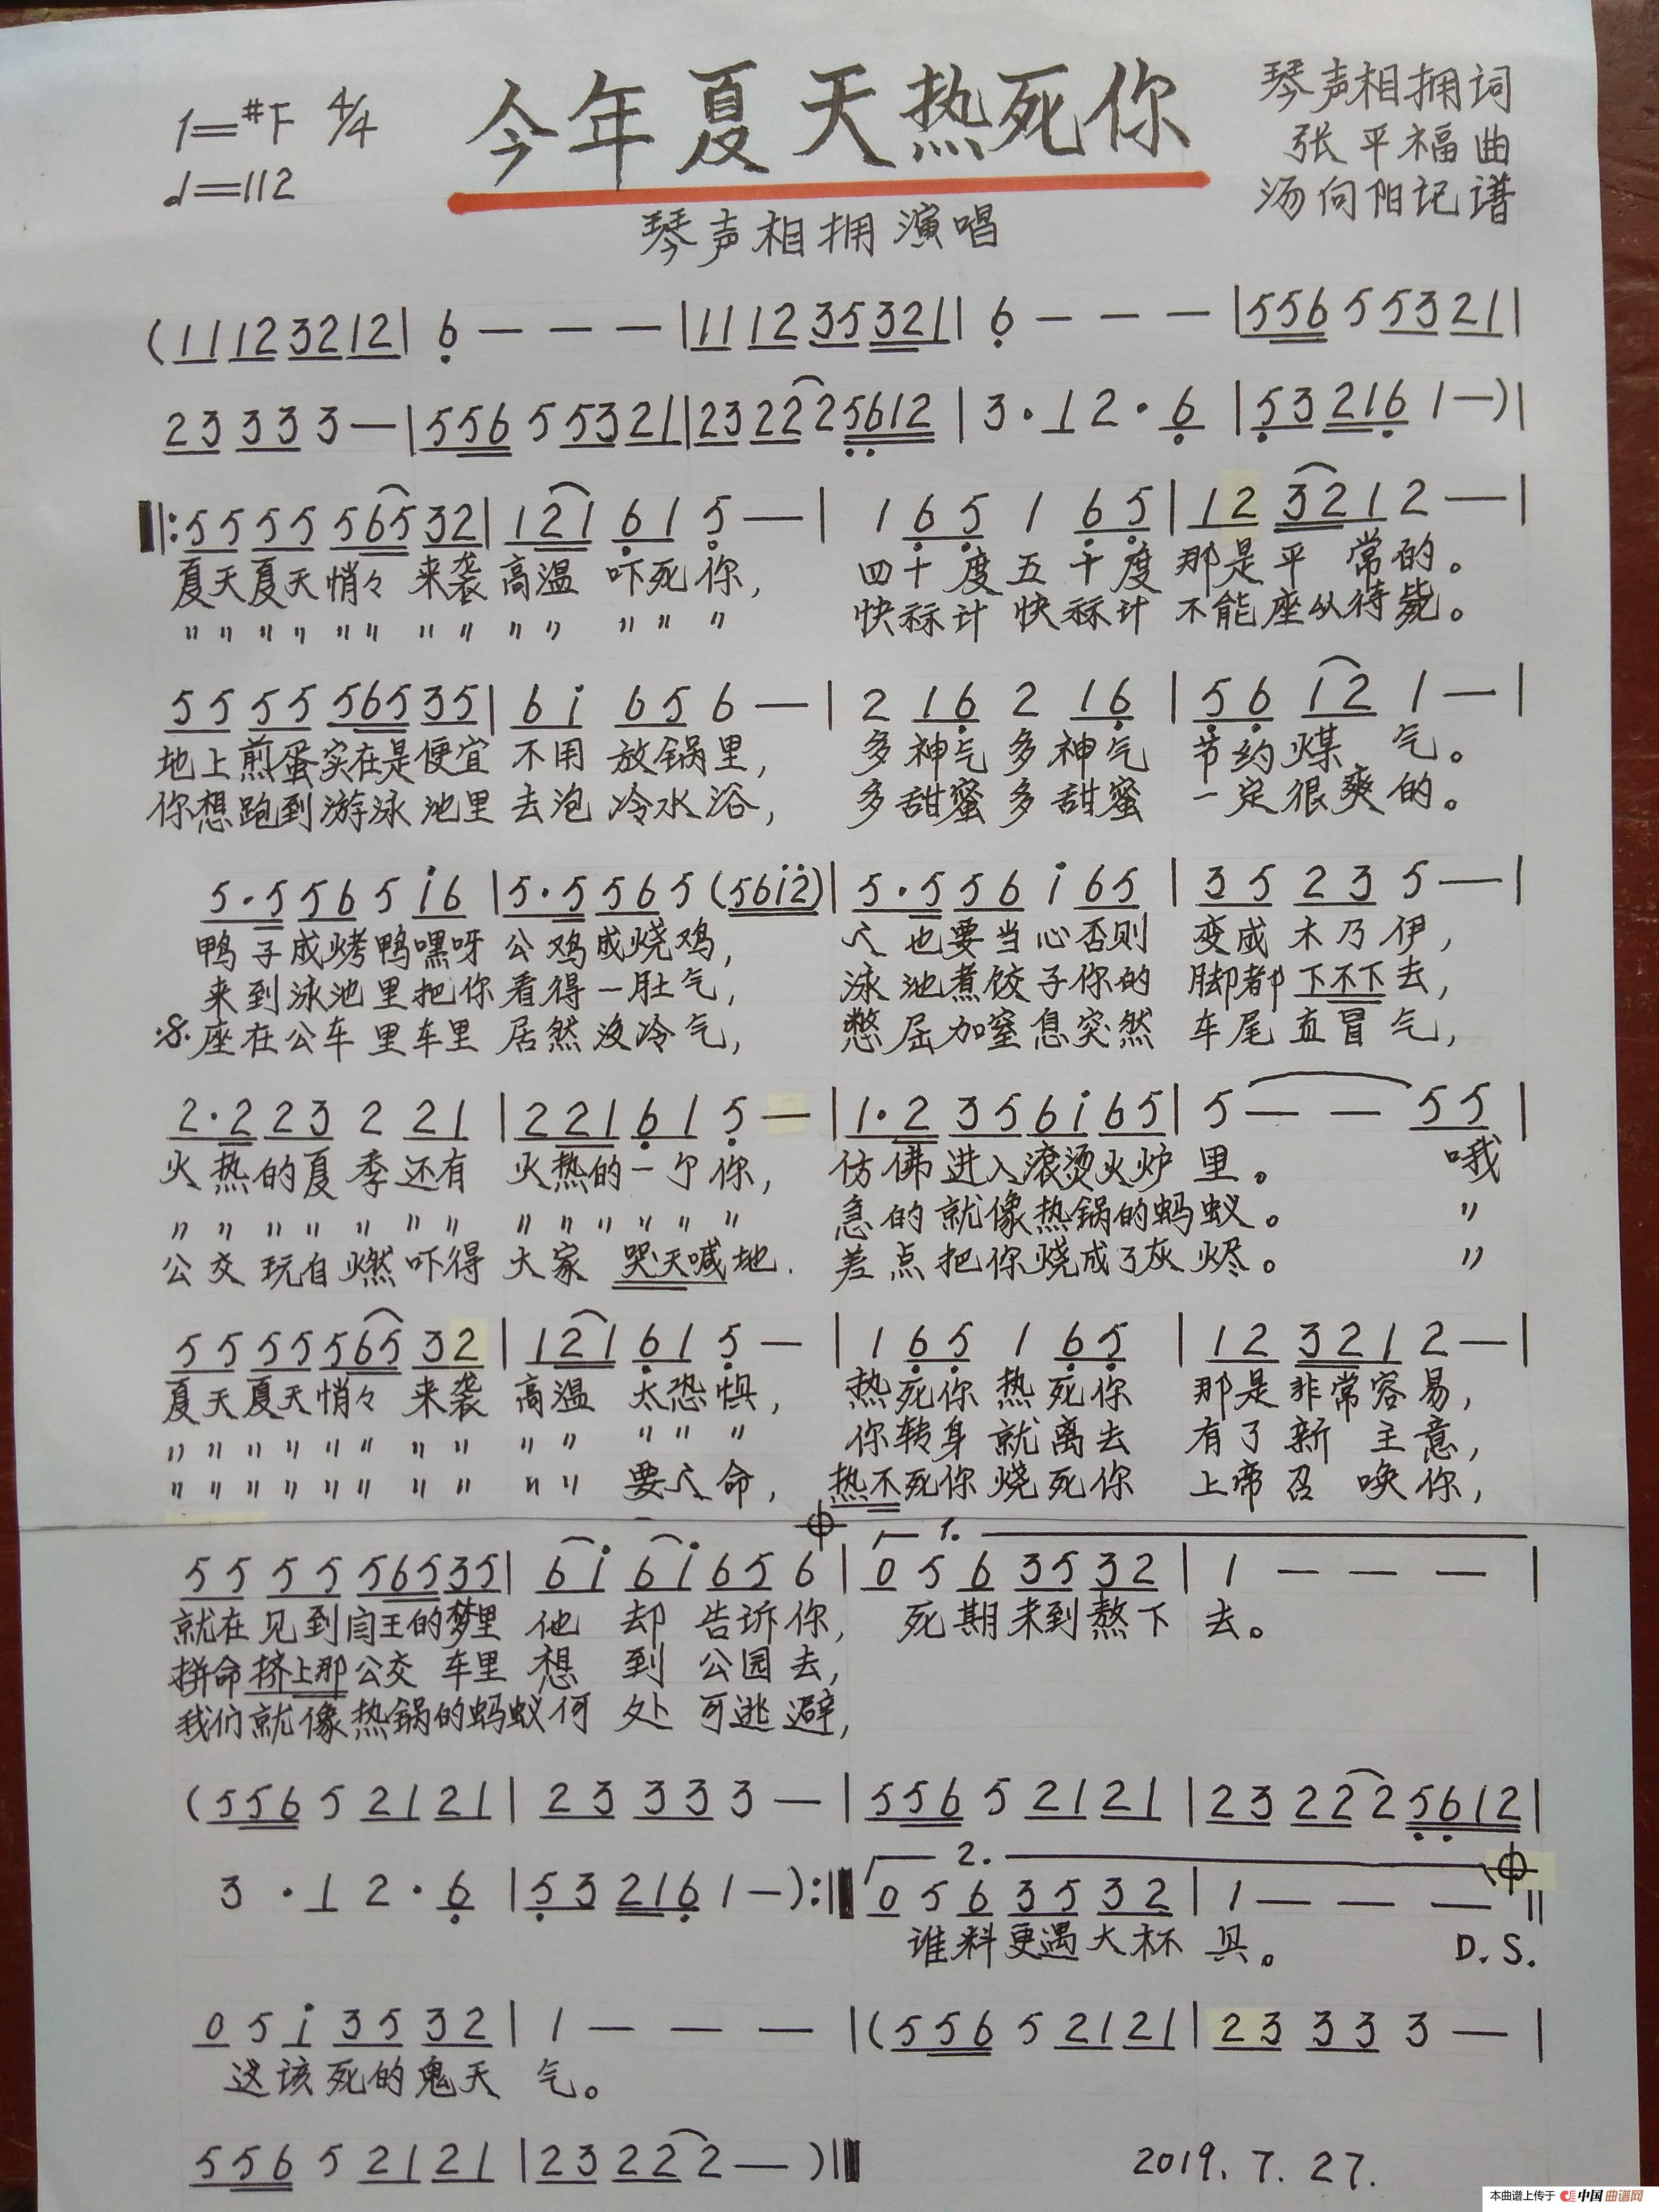 1=#F 4/4
今年夏天热死你
琴声相拥词
张平福曲
♩=112
汤向阳记谱
琴声相拥演唱
(11 12 32 12 | 6 — — — | 11 12 35 321 | 6 — — — | 556 5 53 21 |
23 33 3 — | 556 5 53 21 | 23 22 2 5612 | 3 · 1 2 · 6 | 53 216 1 —) |
‖: 55 55 565 32 | 121 61 5 — | 1 65 1 65 | 12 321 2 — |
夏天夏天悄々 来袭 高温 吓死你, 四十度五十度 那是平 常的。
〃〃〃〃〃〃 〃〃 〃〃 〃〃〃 快秝计 快秝计 不能座从待毙。
55 55 565 35 | 6i 65 6 — | 2 16 2 16 | 56 12 1 — |
地上煎蛋实在是便宜 不用 放锅里, 多神气多神气 节约煤 气。
你想跑到游泳池里 去泡 冷水浴, 多甜蜜多甜蜜 一定很爽的。
5·5 56 5 i6 | 5·5 56 5 (56i2) | 5·5 56 i 65 | 35 23 5 — |
鸭子成烤鸭嘿呀 公鸡成烧鸡, 人也要当心否则 变成木乃伊,
来到泳池里把你 看得一肚气, 泳池煮饺子你的 脚都下不下去,
·S· 座在公车里车里 居然没冷气, 憋屈加窒息突然 车尾直冒气,
2·2 23 2 21 | 221 61 5 — | 1·2 35 6i 65 | 5 — — 55 |
火热的夏季还有 火热的一个你, 仿佛进入滚烫火炉 里。 哦
〃〃〃〃〃〃〃 〃〃〃〃〃〃 急的就像热锅的蚂蚁。 〃
公交玩自燃吓得 大家 哭天喊地. 差点把你烧成了灰烬。 〃
55 55 565 32 | 121 61 5 — | 1 65 1 65 | 12 321 2 — |
夏天夏天悄々 来袭 高温 太恐惧, 热死你热死你 那是非常容易,
〃〃〃〃〃〃 〃〃 〃〃 〃〃〃 你转身就离去 有了新 主意,
〃〃〃〃〃〃 〃〃 〃〃 要人命, 热不死你烧死你 上帝召 唤你,
1.
55 55 565 35 | 6i 6i 65 6 | 0 5 6 35 32 | 1 — — — |
就在见到闫王的梦里 他 却 告诉你, 死期未到熬下 去。
拼命挤上那公交 车里 想 到 公园去,
我们就像热锅的蚂蚁何 处 可逃避,
(556 5 21 21 | 23 33 3 — | 556 5 21 21 | 23 22 2 5612 |
2.
3 · 1 2 · 6 | 53 216 1 —) :‖ 0 5 6 35 32 | 1 — — — ‖
谁料更遇大杯 具。 D.S.
0 5 i 35 32 | 1 — — — | (556 5 21 21 | 23 33 3 — |
这该死的鬼天 气。
556 5 21 21 | 23 22 2 — )‖
2019.7.27.
本曲谱上传于 中国曲谱网